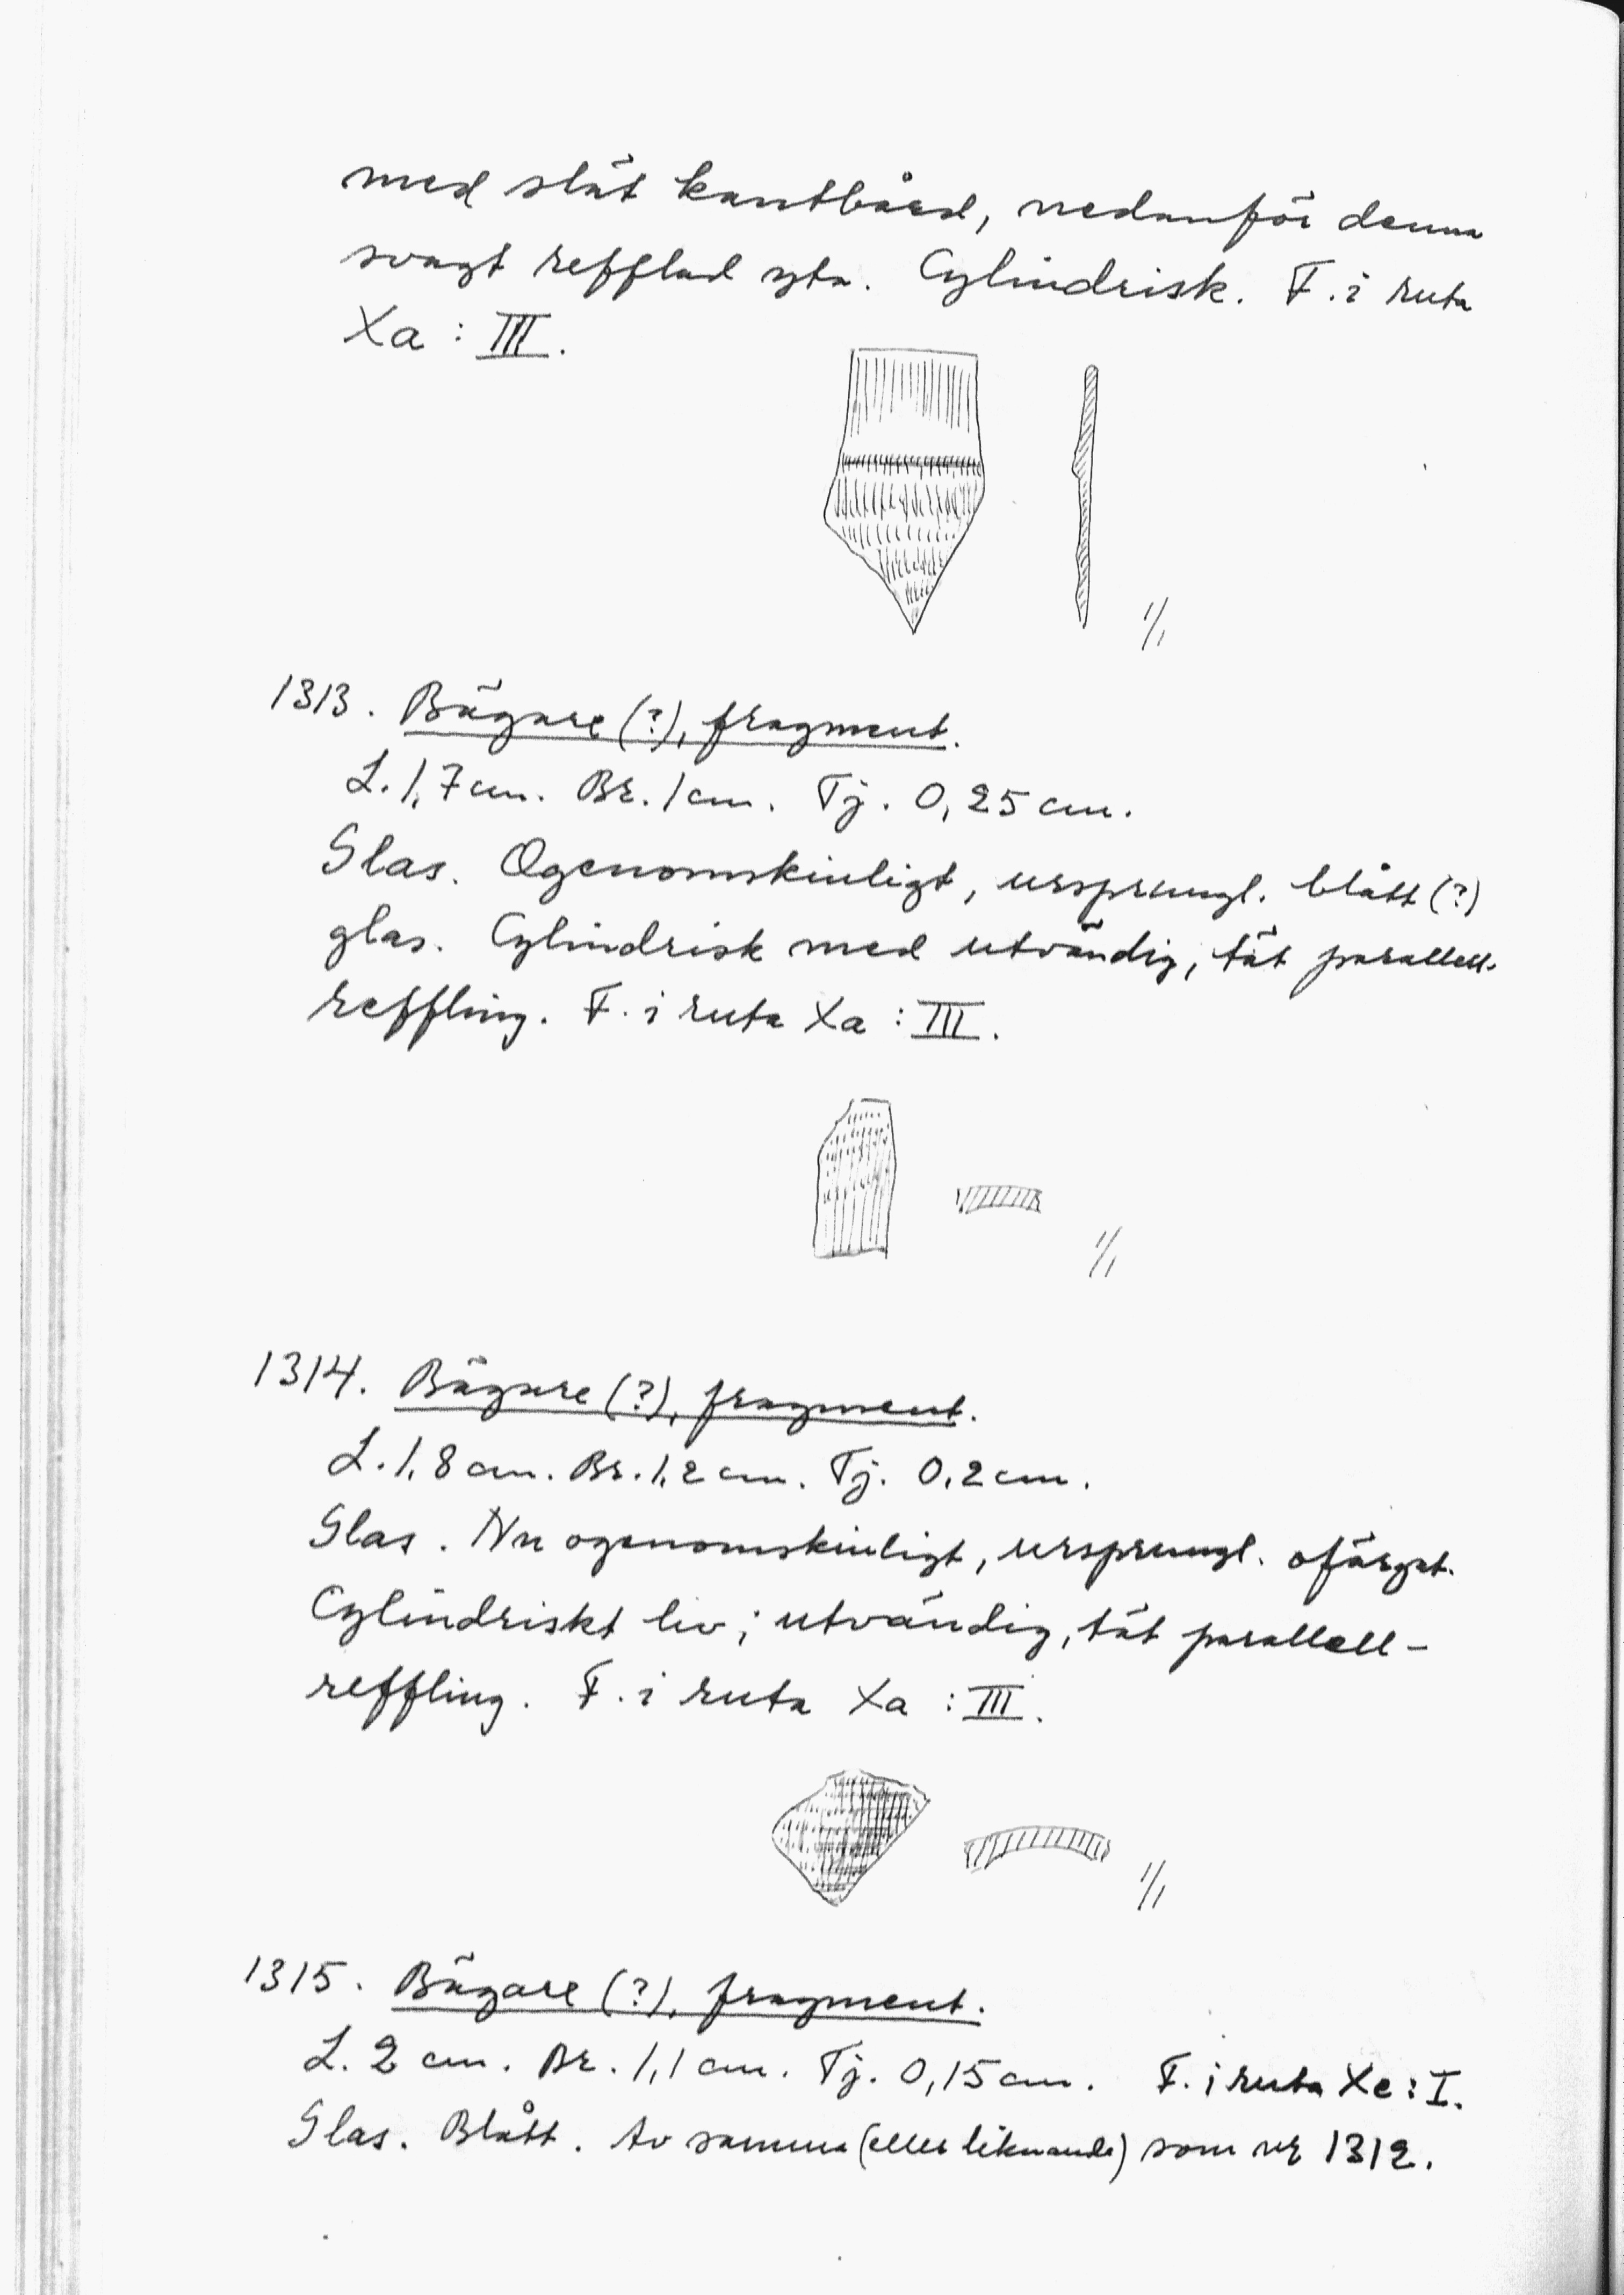 med slät kantbård, nedanför denna
svagt refflad yta. Cylindrisk. F. i ruta
Xa : III.
1/1
1313. Bägare (?), fragment.
L. 1,7 cm. Br. 1 cm. Tj. 0,25 cm.
Glas. Ogenomskinligt, ursprungl. blått (?)
glas. Cylindrisk med utvändig, tät parallell-
reffling. F. i ruta Xa : III.
1/1
1314. Bägare (?), fragment.
L. 1,8 cm. Br. 1,2 cm. Tj. 0,2 cm.
Glas. Nu ogenomskinligt, ursprungl. ofärgat.
Cylindriskt liv; utvändig, tät parallell-
reffling. F. i ruta Xa : III.
1/1
1315. Bägare (?), fragment.
L. 2 cm. Br. 1,1 cm. Tj. 0,15 cm. F. i ruta Xe : I.
Glas. Blått. Av samma (eller liknande) som nr 1312.